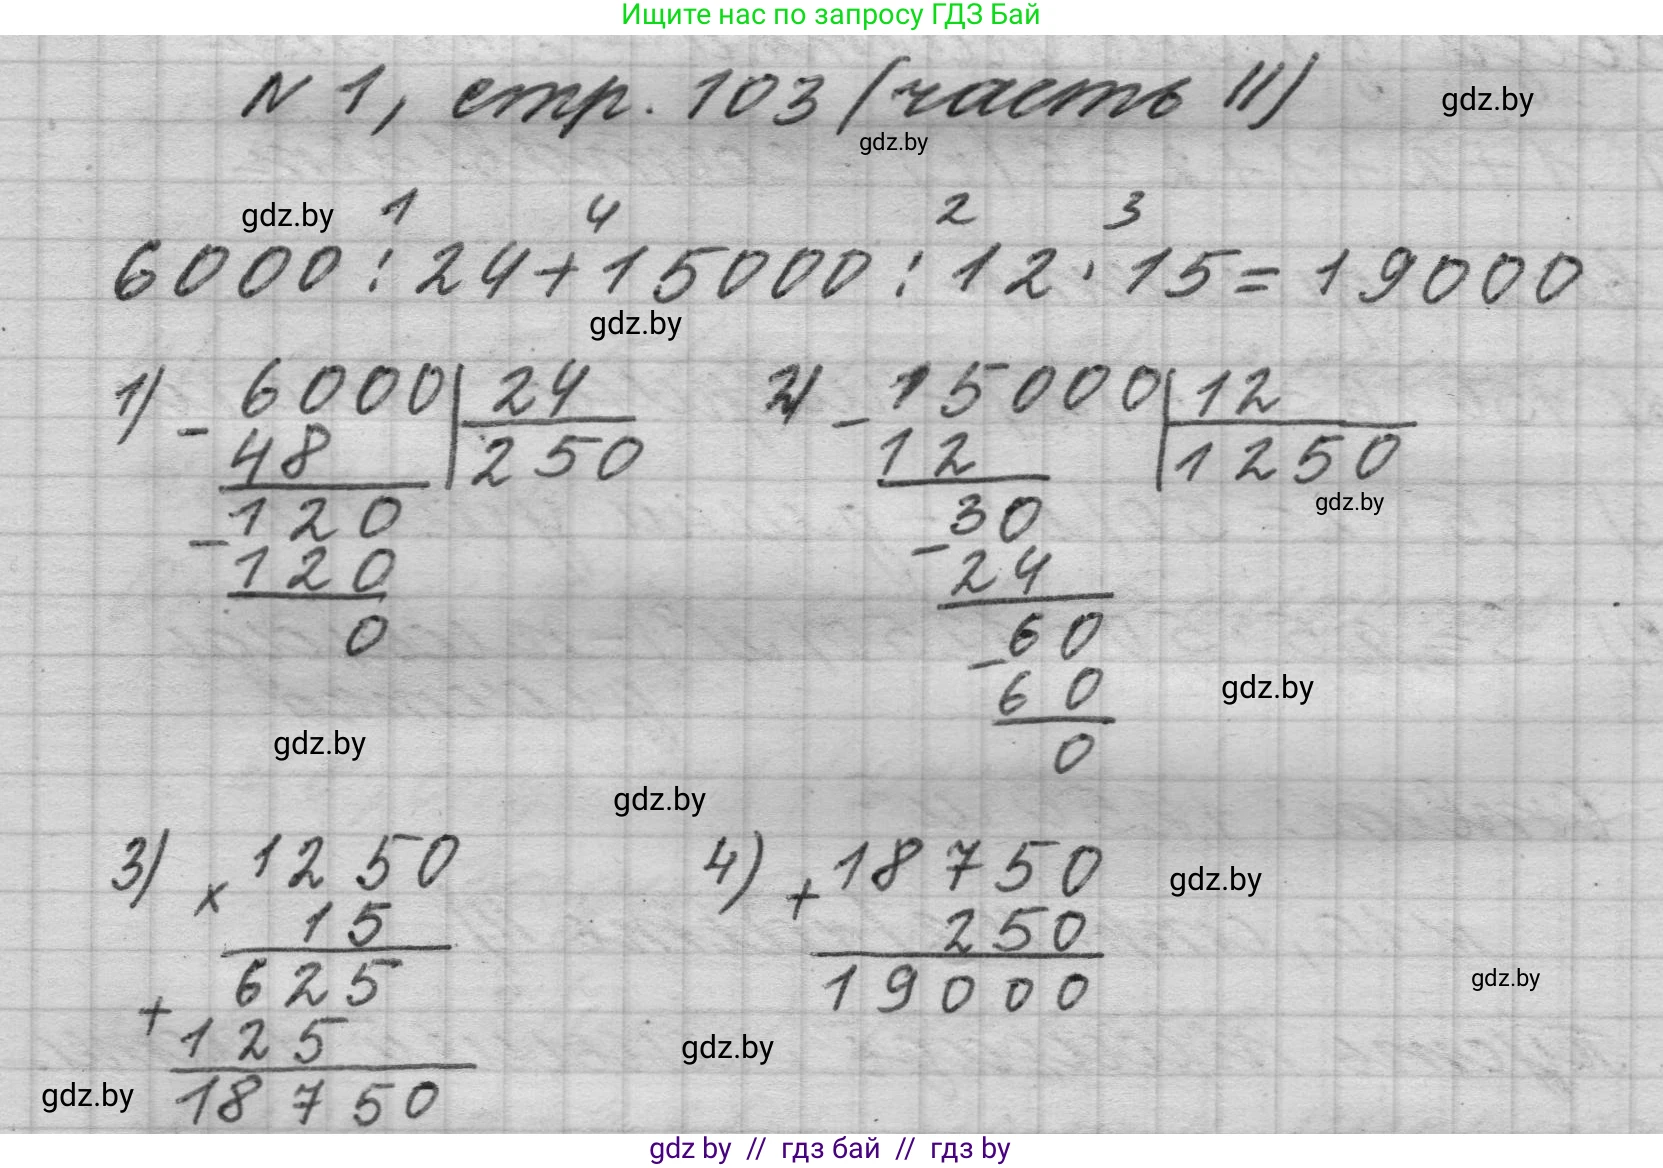 Ищите нас по запросу ГДЗ Бай
N 1, стр. 103 (часть II) gdz.by
gdz.by
gdz.by 1 4 2 3
6000 : 24 + 15000 : 12 · 15 = 19000
gdz.by
1) - 6000 | 24
48 250
- 120
120
0
2) - 15000 | 12
12 1250
gdz.by
30
- 24
60
- 60
0
gdz.by
gdz.by
gdz.by
3) x 1250
15
625
+ 125
18750
4) + 18750
250
19000
gdz.by
gdz.by
gdz.by
gdz.by
gdz by // гдз бай // гдз by